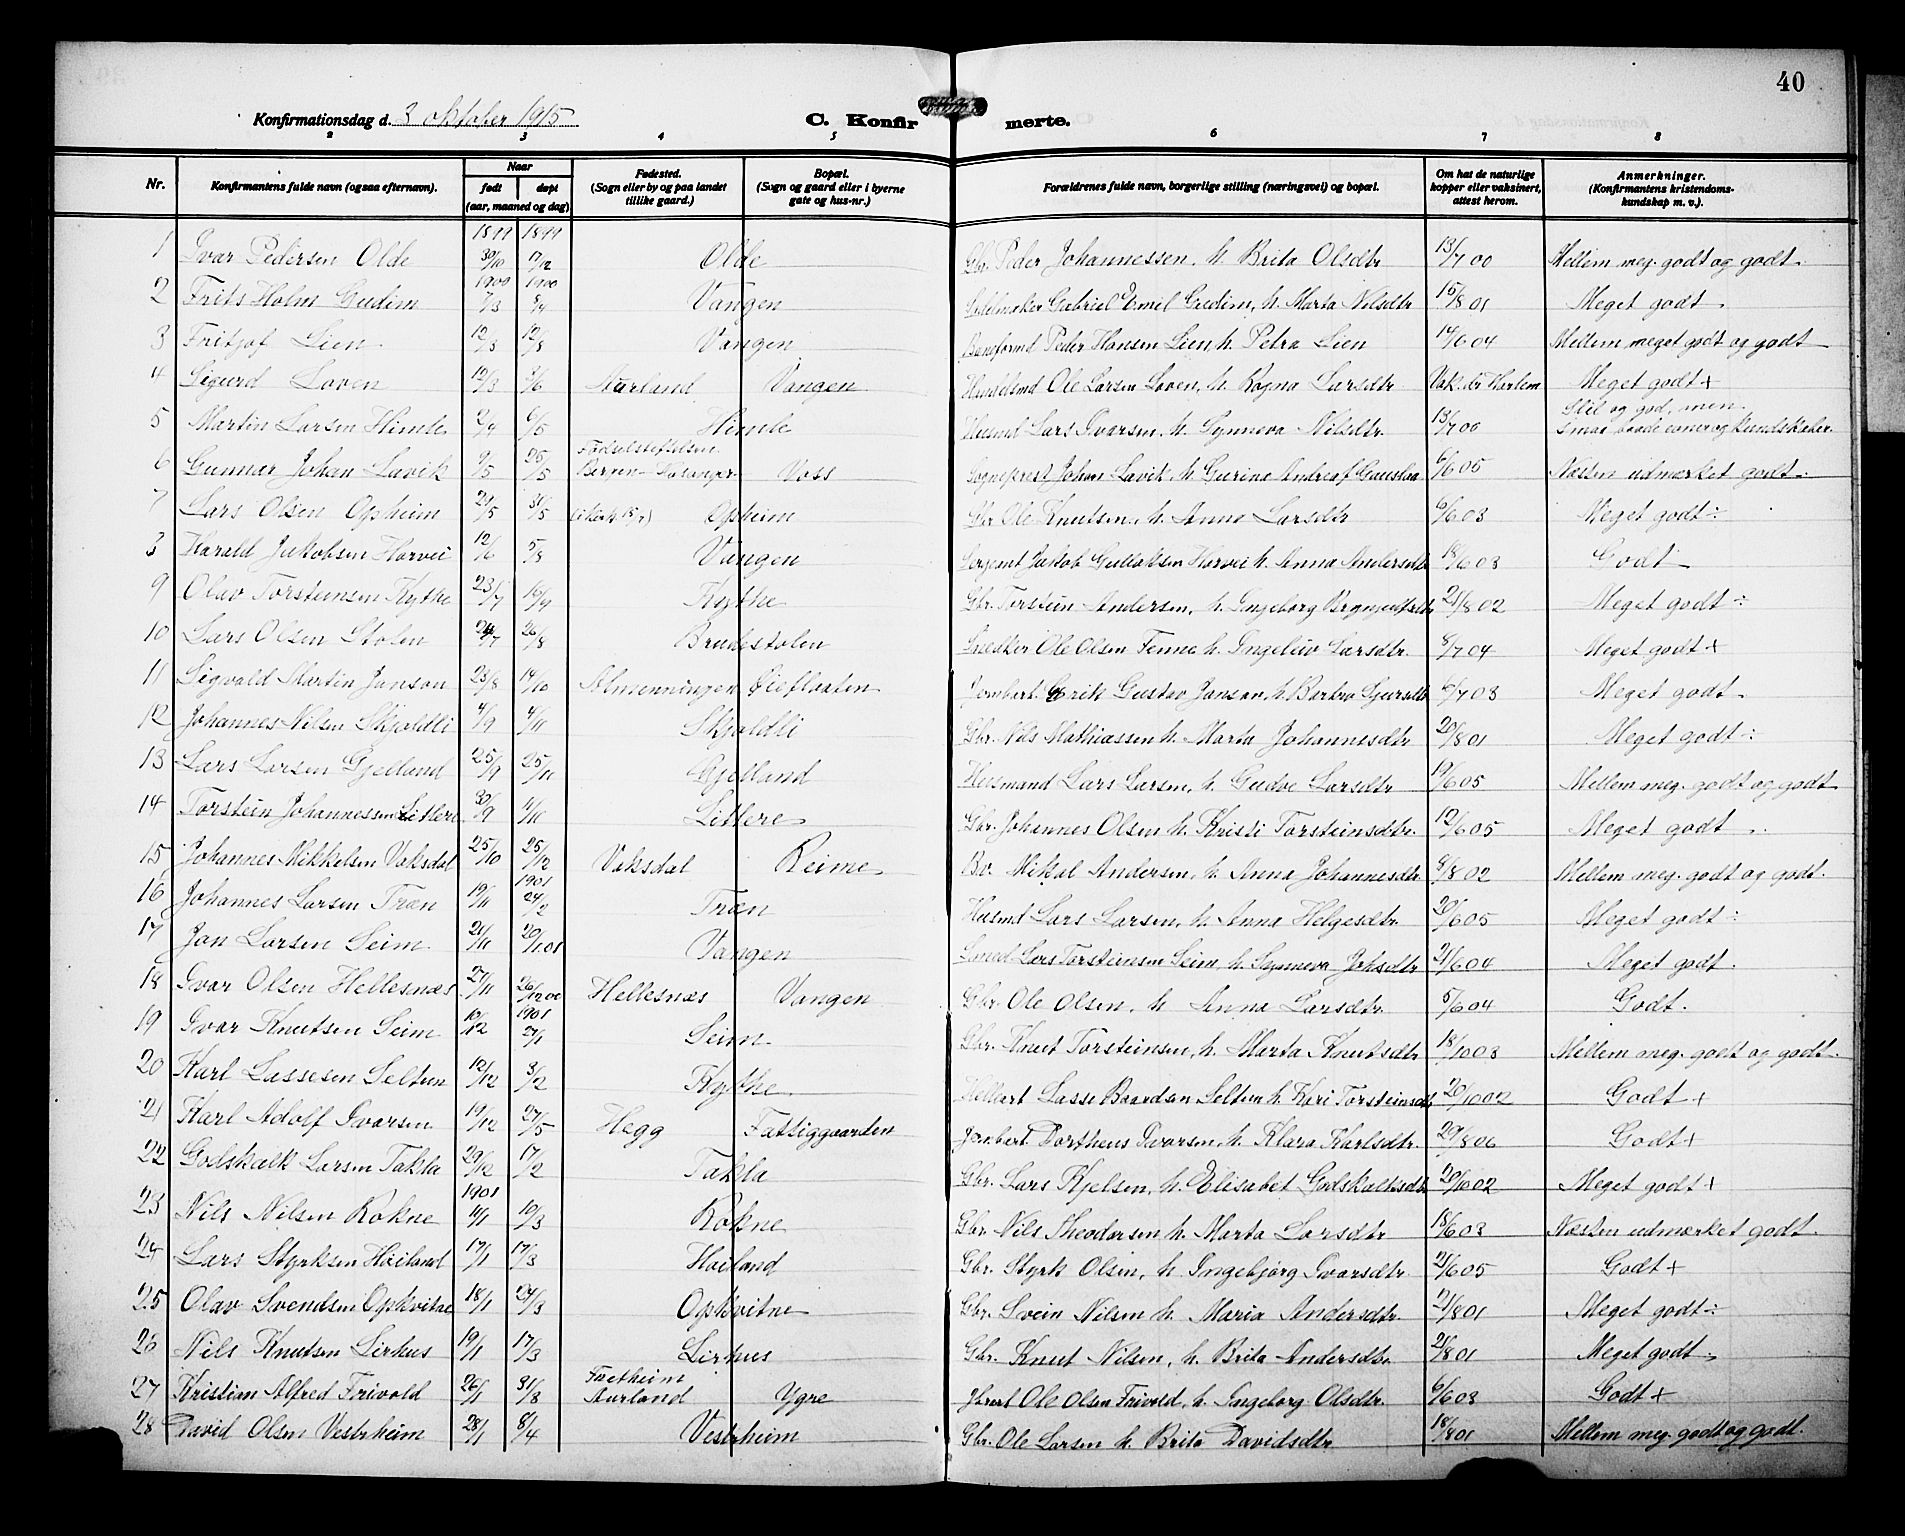 40
Konfirmationsdag d. 3 oktober 1915
C. Konfir merte.
2 3 4 5 6 7 8
Nr. Konfirmantens fulde navn (ogsaa efternavn). Naar født døpt (aar, maaned og dag) Fødested. (Sogn eller by og paa landet tillike gaard.) Bopæl. (Sogn og gaard eller i byerne gate og hus-nr.) Forældrenes fulde navn, borgerlige stilling (næringsvei) og bopæl. Om hat de naturlige kopper eller vaksinert, attest herom. Anmerkninger. (Konfirmantens kristendoms- kundskap m. v.).
1899 1899
1 Ivar Pedersen Olde 30/10 17/12 Olde Gbr. Peder Johannessen, h. Brita Olsdtr 13/7 00 Mellem meg. godt og godt.
1900 1900
2 Frits Holm Gudim 7/3 8/4 Vangen Gabriel Emil Gudim, h. Marta Nilsdtr 15/8 01 Meget godt.
3 Fritjof Lien 12/3 12/8 Vangen Baneformd Peder Hansen Lien, h. Petra Lien 14/6 04 Mellem meget godt og godt
4 Sigurd Loven 19/3 3/6 Aurland Vangen Ole Larsen Loven, h. Ragna Larsdtr Vak. Meget godt +
5 Martin Larsen Himle 2/4 6/5 Himle Husmd Lars Ivarsen, h. Synneva Nilsdtr. 13/7 00 Slil og god, men smaa baade evner og kundskaber.
6 Gunnar Johan Lavik 9/5 25/5 Fødselsstiftelsen Bergen Voss Sogneprest Johan Lavik, h. Gurine Andrea f. Gauslaa 6/6 05 Næsten udmerket godt÷
7 Lars Olsen Opheim 21/5 31/5 Opheim Gbr Ole Knutsen, h. Anna Larsdtr 6/6 03 Meget godt÷
8 Harald Jakobsen Horvei 12/6 5/8 Vangen Sergeant Jakob Horvei h. Anna Andersdtr 18/6 03 Godt
9 Olav Torsteinsen Kythe 23/7 16/9 Kythe Gbr. Torstein Andersen, h. Ingeborg 21/8 02 Meget godt÷
10 Lars Olsen Stolen 24/7 26/8 Brudestolen Snedker Ole Olsen h. Ingeleiv Larsdtr. 8/7 04 Meget godt +
11 Sigvald Martin Janson 23/8 14/10 Almenningen Øiefloaten Jernbart. Erik Gustav Janson, h. 6/7 03 Meget godt.
12 Johannes Nilsen Skjoldli 4/9 4/11 Skjoldli Gbr. Nils Mathiassen h. Marta Johannesdtr 20/8 01 Meget godt÷
13 Lars Larsen Gjelland 25/9 25/11 Gjelland Husmand Lars Larsen, h. Gudve Larsdtr 19/6 05 Mellem meg. godt og godt
14 Torstein Johannessen Litlere 30/9 11/11 Litlere Gbr. Johannes Olsen h. Kristi Torsteinsdtr. 12/6 05 Meget godt.
15 Johannes Mikkelsen Vaksdal 25/10 25/12 Vaksdal Reime Bv. Mikal Andersen, h. Anna Johannesdtr 9/8 02 Mellem meg. godt og godt.
1901
16 Johannes Larsen Træn 19/11 24/2 Træn Husmd Lars Larsen, h. Anna Helgesdtr. 20/6 05 Meget godt÷
17 Jon Larsen Seim 21/11 20/1 01 Vangen Lars Torsteinsen Seim, h. Synneva Johsdtr 21/6 04 Meget godt.
18 Ivar Olsen Hellesnæs 27/11 26/12 00 Hellesnæs Vangen Gbr. Ole Olsen, h. Anna Larsdtr. 5/6 04 Godt.
1901
19 Ivar Knutsen Seim 10/12 27/1 Seim Gbr. Knut Torsteinsen, h. Marta Knutsdtr 18/10 03 Mellem meg. godt og godt.
20 Karl Lassesen Seltun 12/12 3/2 Kythe Lasse Baardsen Seltun h. Kari Torsteinsdtr 20/10 02 Godt +
21 Karl Adolf Ivarsen 19/12 27/5 Hegg Fattiggaarden Jernbart. Dortheus Ivarsen, h. Klara Karlsdtr. 29/8 06 Godt +
22 Godskalk Larsen Takla 29/12 17/2 Takla Gbr. Lars Kjelsen, h. Elisabet Godskalksdtr 20/6 02 Meget godt +
1901
23 Nils Nilsen Rokne 11/1 10/3 Rokne Gbr. Nils Theodorsen h. Marta Larsdtr 18/6 03 Næsten udmærket godt.
24 Lars Styrksen Høiland 17/1 17/3 Høiland Gbr. Styrk Olsen, h. Ingebjørg Ivarsdtr. 21/6 05 Godt +
25 Olav Svendsen Opkvitne 18/1 24/3 Opkvitne Gbr. Svein Nilsen h. Maria Andersdtr. 21/8 01 Meget godt÷
26 Nils Knutsen Lirhus 19/1 17/3 Lirhus Gbr. Knut Nilsen, h. Brita Andersdtr 21/8 01 Meget godt.
27 Kristian Alfred Frivold 26/1 31/3 Fretheim Aurland Ygre Ole Olsen Frivold, h. Ingeborg Olsdtr. 6/6 03 Godt +
28 David Olsen Vestrheim 28/1 8/4 Vestrheim Gbr. Ole Larsen h. Brita Davidsdtr 18/8 01 Mellem meg. godt og godt.